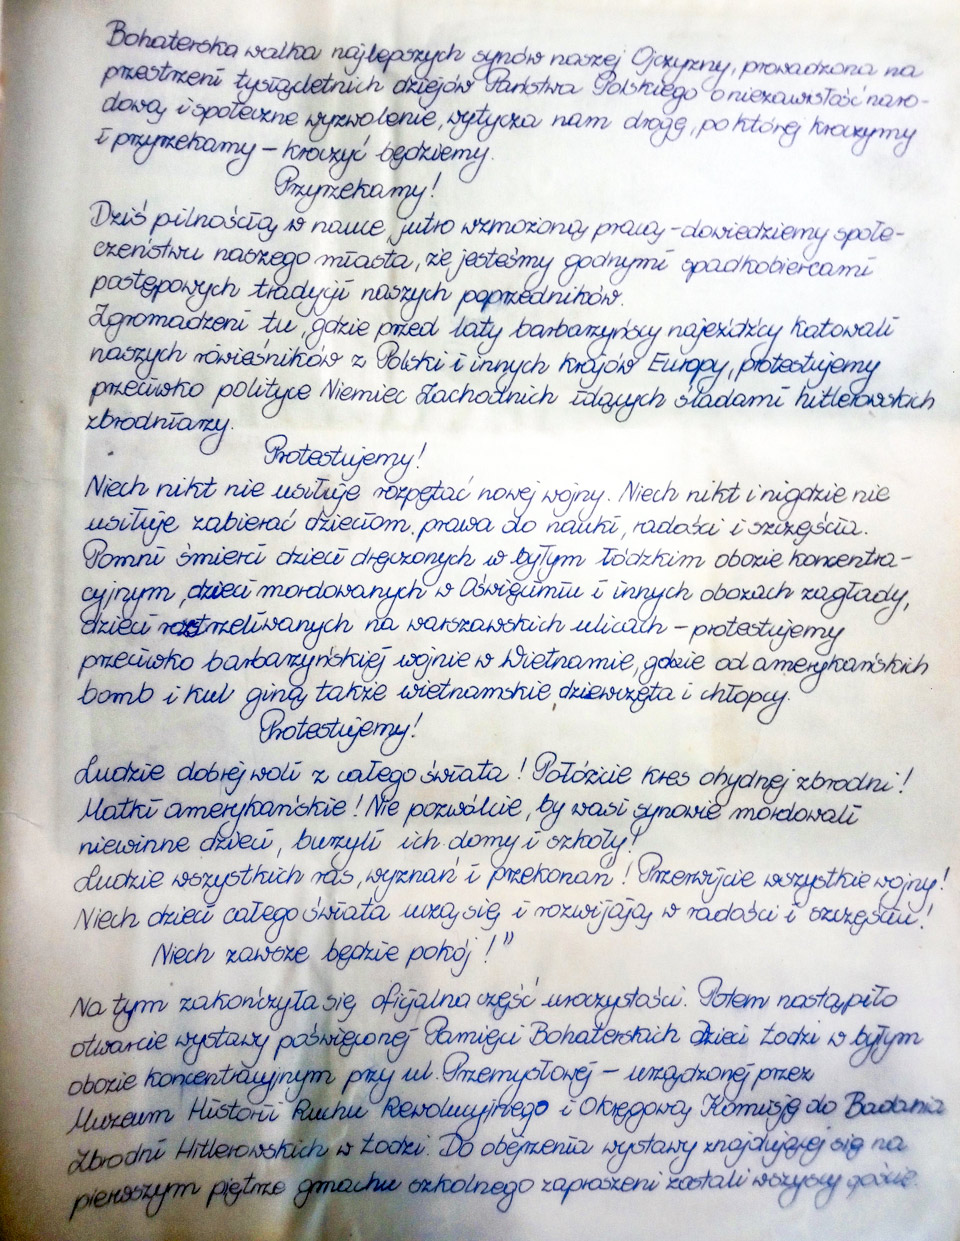 Bohaterska walka najlepszych synów naszej Ojczyzny, prowadzona na
przestrzeni tysiącletnich dziejów Państwa Polskiego o niezawisłość naro-
dową i społeczne wyzwolenie, wytycza nam drogę, po której kroczymy
i przyrzekamy – kroczyć będziemy.
Przyrzekamy!
Dziś pilnością w nauce jutro wzmożoną pracą – dowiedziemy społe-
czeństwu naszego miasta, że jesteśmy godnymi spadkobiercami
postępowych tradycji naszych poprzedników.
Zgromadzeni tu, gdzie przed laty barbarzyńscy najeźdźcy katowali
naszych rówieśników z Polski i innych krajów Europy, protestujemy
przeciwko polityce Niemiec Zachodnich idących śladami hitlerowskich
zbrodniarzy.
Protestujemy!
Niech nikt nie usiłuje rozpętać nowej wojny. Niech nikt i nigdzie nie
usiłuje zabierać dzieciom, prawa do nauki, radości i szczęścia.
Pomni śmierci dzieci dręczonych w byłym łódzkim obozie koncentra-
cyjnym, dzieci mordowanych w Oświęcimiu i innych obozach zagłady,
dzieci rozstrzeliwanych na warszawskich ulicach – protestujemy
przeciwko barbarzyńskiej wojnie w Wietnamie, gdzie od amerykańskich
bomb i kul giną także wietnamskie dziewczęta i chłopcy.
Protestujemy!
Ludzie dobrej woli z całego świata! Połóżcie kres ohydnej zbrodni!
Matki amerykańskie! Nie pozwólcie, by wasi synowie mordowali
niewinne dzieci, burzyli ich domy i szkoły!
Ludzie wszystkich ras, wyznań i przekonań! Przerwijcie wszystkie wojny!
Niech dzieci całego świata uczą się i rozwijają w radości i szczęściu!
Niech zawsze będzie pokój!"
Na tym zakończyła się oficjalna część uroczystości. Potem nastąpiło
otwarcie wystawy poświęconej Pamięci Bohaterskich Dzieci Łodzi w byłym
obozie koncentracyjnym przy ul. Przemysłowej – urządzonej przez
Muzeum Historii Ruchu Rewolucyjnego i Okręgową Komisję do Badania
Zbrodni Hitlerowskich w Łodzi. Do obejrzenia wystawy znajdującej się na
pierwszym piętrze gmachu szkolnego zaproszeni zostali wszyscy goście.